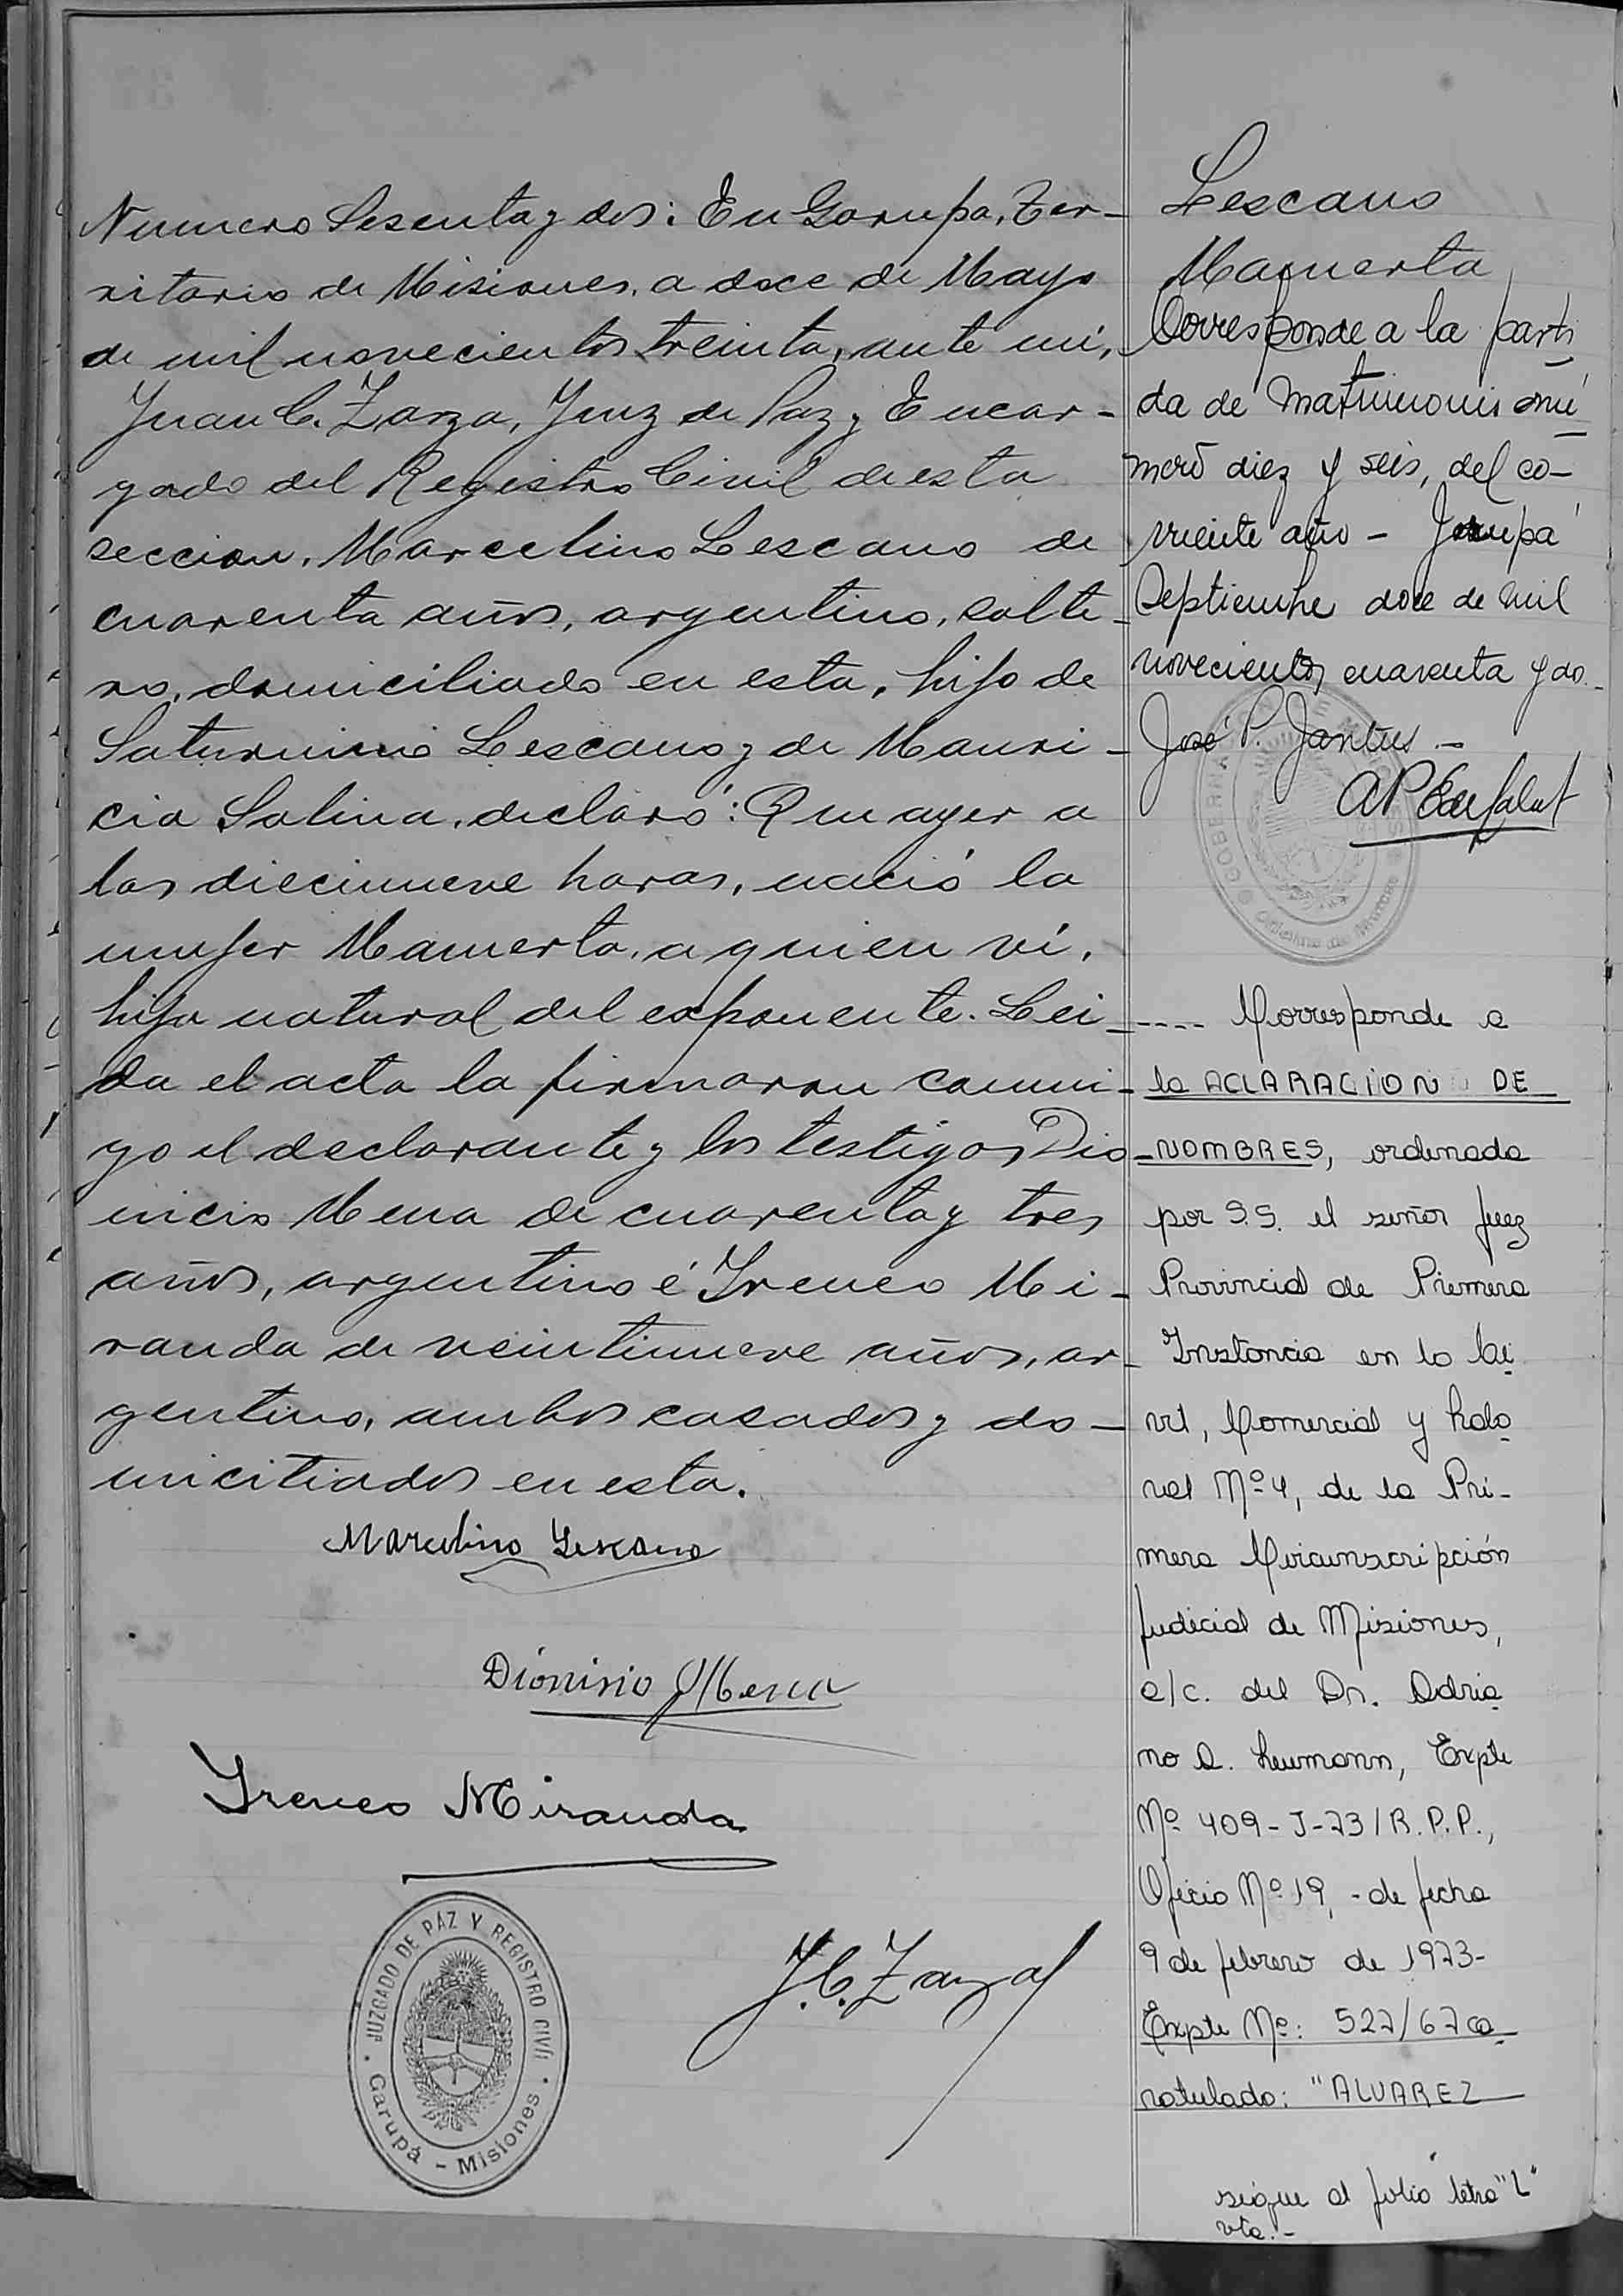 Numero Sesenta y dos: En Garupa, Ter-
ritorio de Misiones, a doce de Mayo
de mil novecientos treinta, ante mi,
Juan C. Zarza, Juez de Paz y Encar-
gado del Registro Civil de esta
seccion, Marcelino Lescano de
cuarenta años, argentino, solte-
ro, domiciliado en esta, hijo de
Saturnino Lescano y de Mauri-
cia Salina, declaró: Que ayer a
las diecinueve horas, nació la
mujer Mamerta, a quien vi,
hija natural del exponente. Lei-
da el acta la firmaron conmi-
go el declarante y los testigos Dio-
nicio Mena de cuarenta y tres
años, argentino é Ireneo Mi-
randa de veintinueve años, ar-
gentino, ambos casados y do-
miciliados en esta.
Marcelino Lescano
Dionisio Mena
Ireneo Miranda
J. C. Zarza
JUZGADO DE PAZ Y REGISTRO CIVIL
Garupá - Misiones
Lescano
Mamerta
Corresponde a la parti
da de matrimonio nú
mero diez y seis, del co-
rriente año - Garupá
Septiembre doce de mil
novecientos cuarenta y do.
José P. Jantus -
---- Corresponde a
la ACLARACION DE
NOMBRES, ordenada
por S.S. el señor Juez
Provincial de Primera
Instancia en lo Ci
vil, Comercial y Labo
ral Nº 4, de la Pri-
mera Circunscripción
Judicial de Misiones,
a/c. del Dr. Adria
no A. Leumann, Expte
Nº 409-J-73/R.P.P.,
Oficio Nº 19, - de fecha
9 de febrero de 1973-
Expte Nº: 527/67 ca
ratulado: "ALVAREZ
sigue al folio letra "L"
vta.-